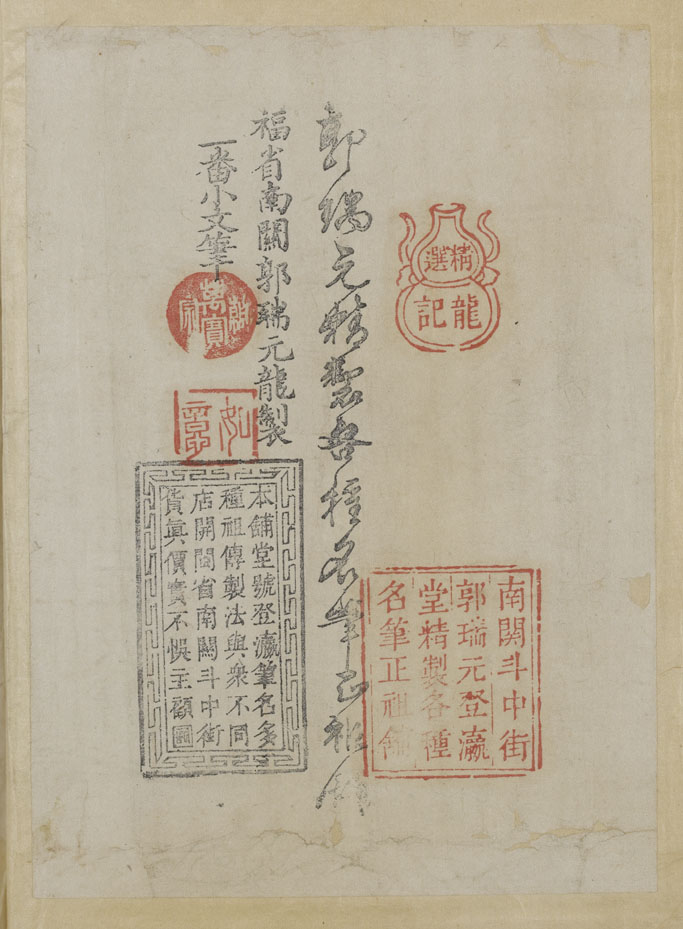 精選
龍記
南関斗中街
郭瑞元登瀛
堂精製各種
名筆正祖舖
郭瑞元精製各種名筆正祖舖
福省南關郭瑞元龍製
一番小文筆
萬寶
如
本舖堂號登瀛筆名多
種祖傳製法與衆不同
店開閩省南關斗中街
貨眞價實不悞主顧